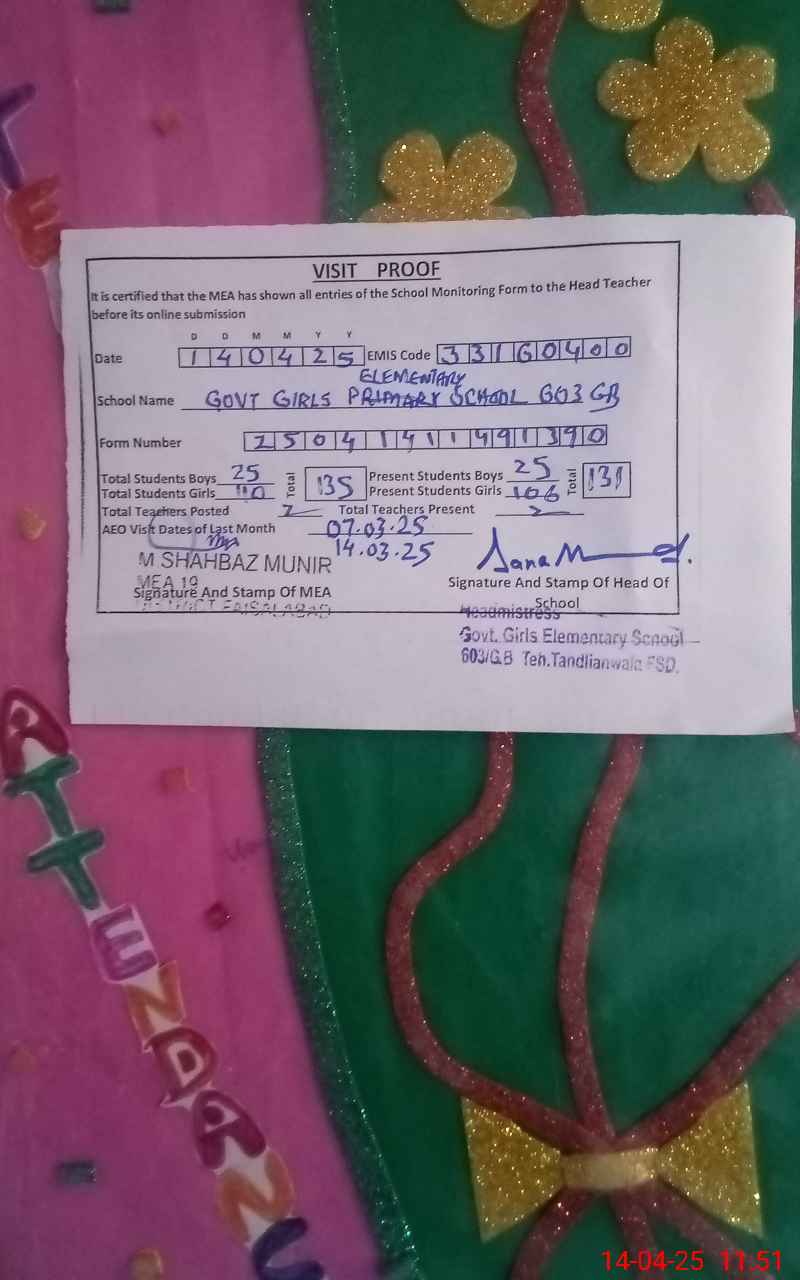 VISIT PROOF
It is certified that the MEA has shown all entries of the School Monitoring Form to the Head Teacher
before its online submission
D D M M Y Y
Date 1 4 0 4 2 5 EMIS Code 3 3 1 6 0 4 0 0
ELEMENTARY
School Name GOVT GIRLS PRIMARY SCHOOL 603 GB
Form Number 2 5 0 4 1 4 1 1 4 9 1 3 9 0
Total Students Boys 25 Total 135 Present Students Boys 25 Total 131
Total Students Girls 110 Present Students Girls 106
Total Teachers Posted 2 Total Teachers Present 2
AEO Visit Dates of Last Month 07.03.25
14.03.25
M SHAHBAZ MUNIR
MEA 19
Signature And Stamp Of MEA
DISTRICT FAISALABAD
Signature And Stamp Of Head Of
School
Headmistress
Govt. Girls Elementary School
603/G.B Teh.Tandlianwala FSD.
TE
ATTENDANC
14-04-25 11:51